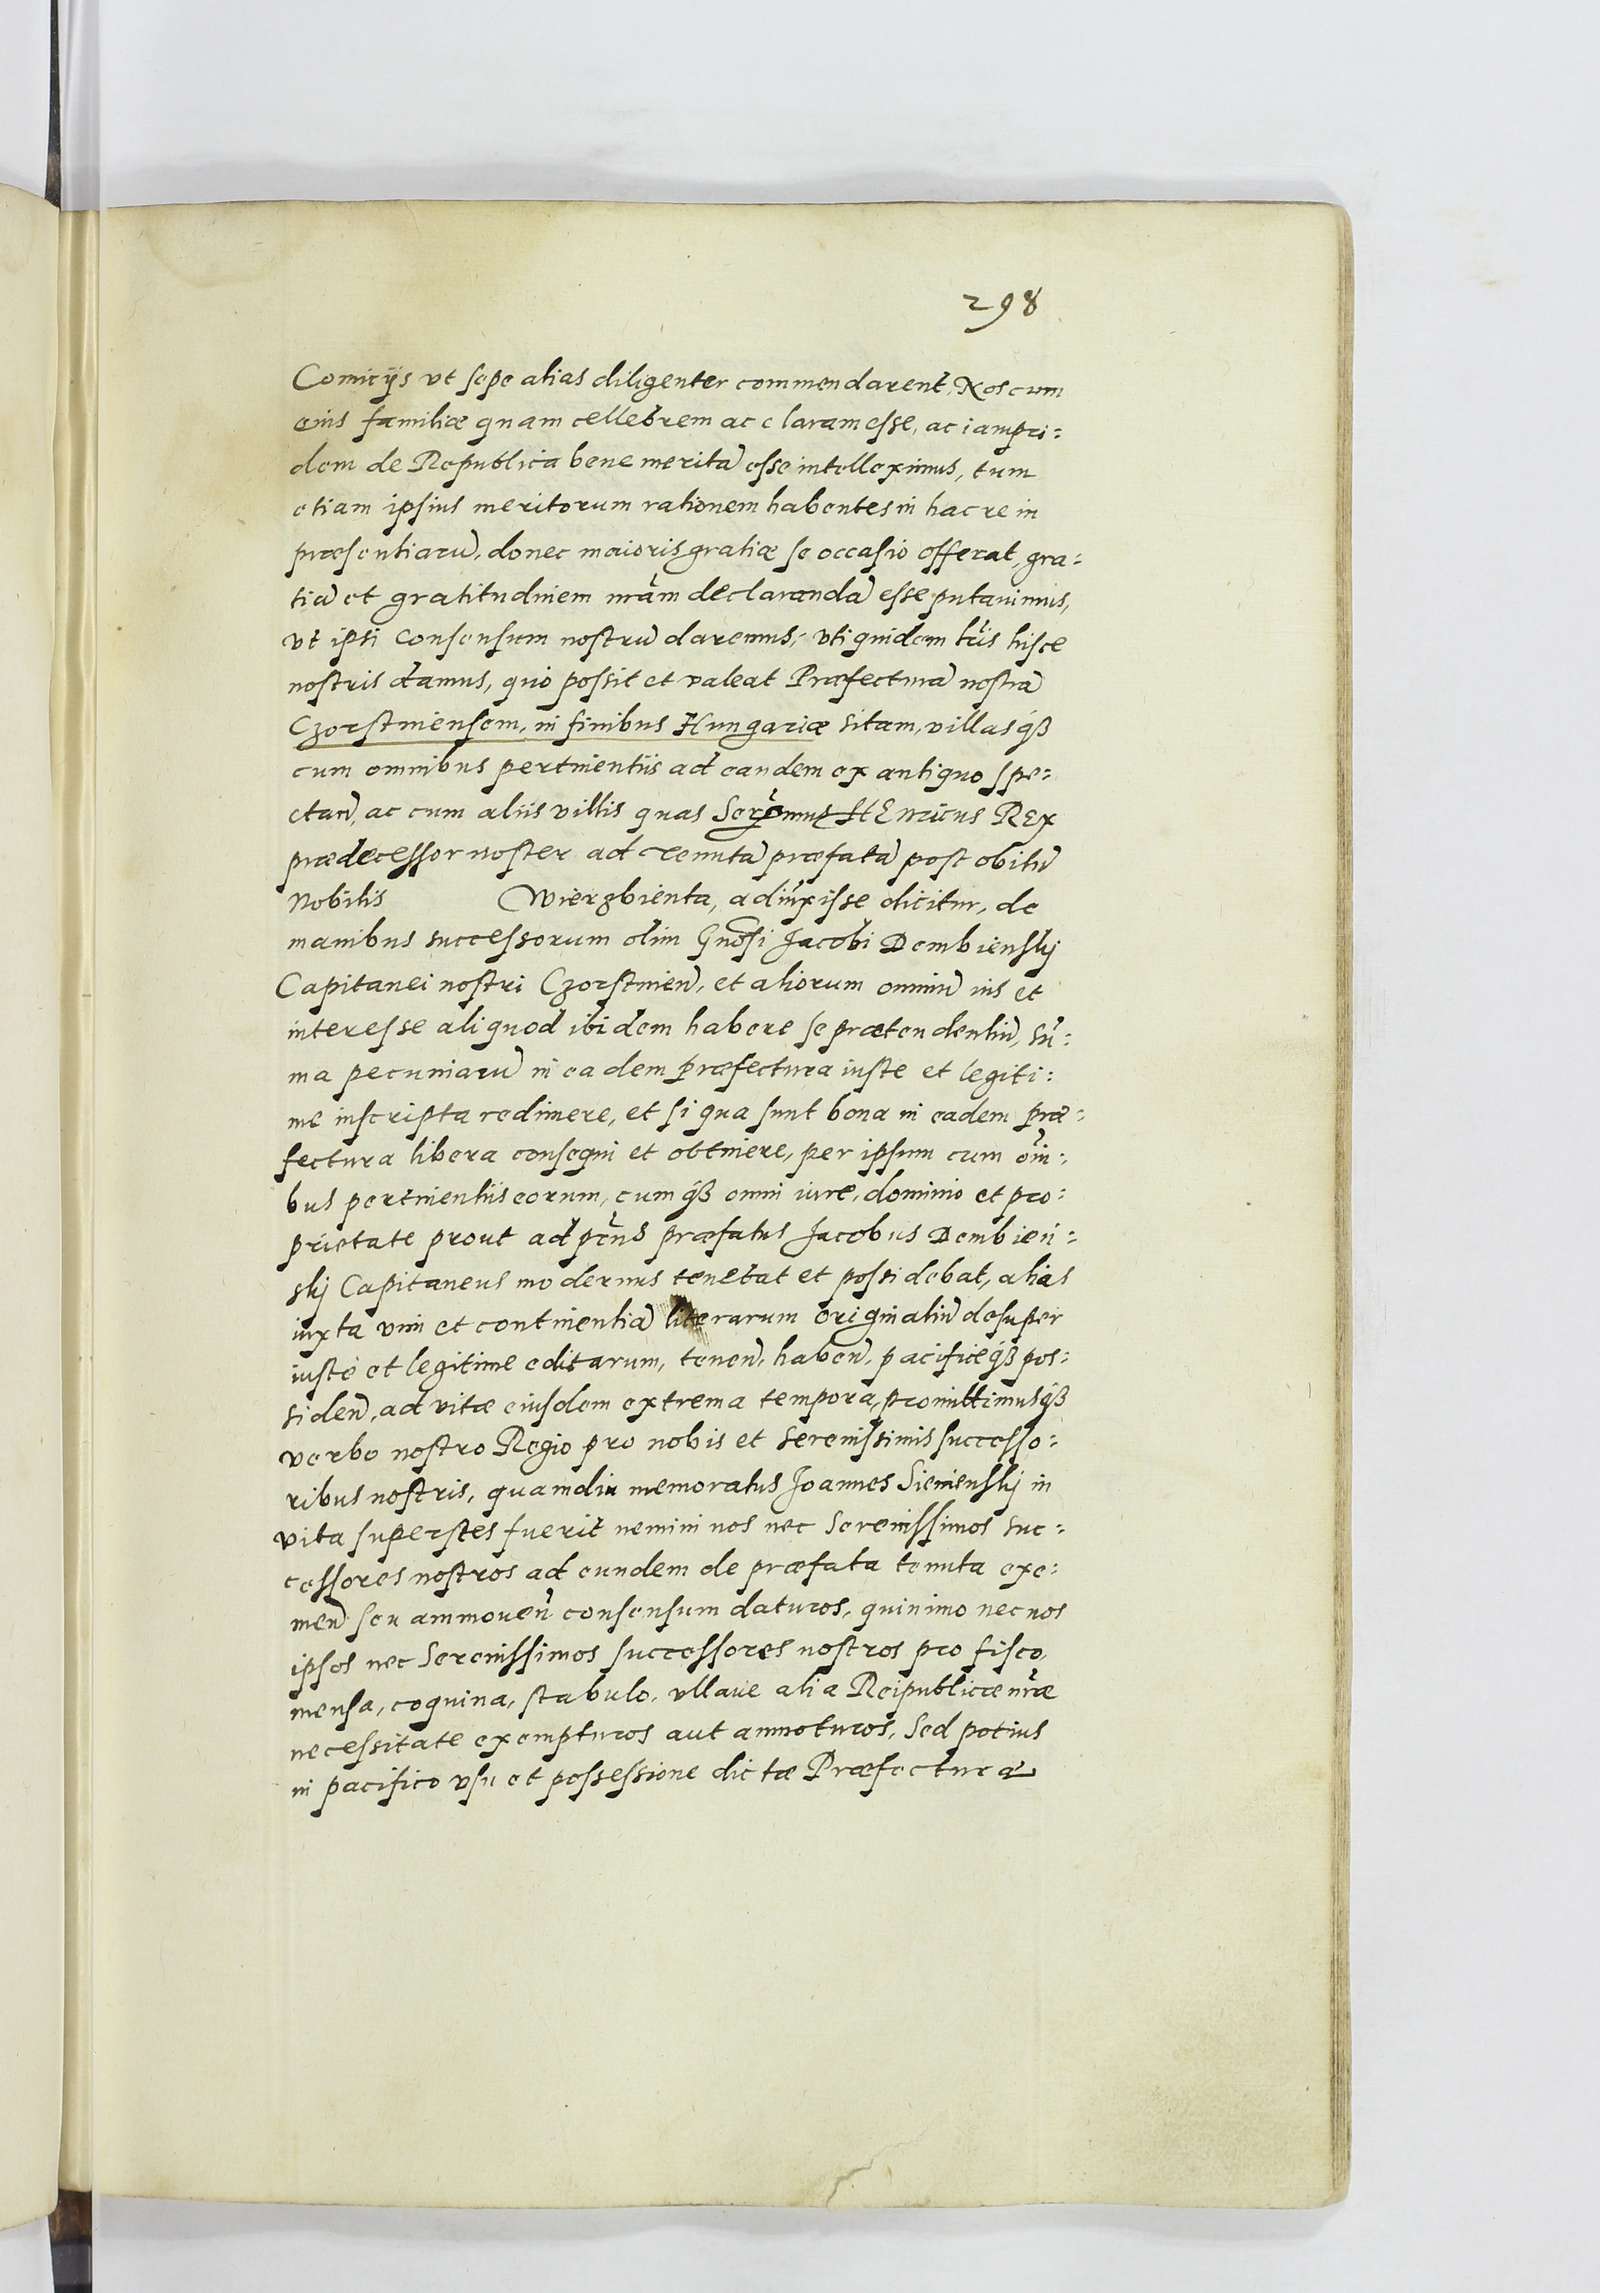 298
Comitijs vt sepe alias diligenter commendarent, Nos cum
eius familiæ quam cellebrem ac claram esse, ac iampri:
dem de Republica bene meritã esse intelleximus, tum
etiam ipsius meritorum rationem habentes in hac re in
præsentiarũ, donec maioris gratiæ se occasio offerat, gra:
tiã et gratitudinem nrãm declarandã esse putauimus,
vt ipsi consensum nostrũ daremus, vti quidem lr̃is hisce
nostris damus, quo possit et valeat Præfecturã nostrã
Czorstinensem, in finibus Hungariæ sitam, villasq́ꝫ
cum omnibus pertinentiis ad eandem ex antiquo spe:
ctañ, ac cum aliis villis quas Serẽmus HENricus REX
prædecessor noster ad tenutã præfatã post obitũ
Nobilis Wierzbienta, adiũxisse dicitur, de
manibus successorum olim Gnõsi Jacobi Dembienskj
Capitanei nostri Czorstineñ, et aliorum omniũ ius et
interesse aliquod ibidem habere se prætendentiũ, sũ:
ma pecuniarũ in eadem præfectura iuste et legiti:
me inscripta redimere, et si qua sunt bona in eadem præ:
fectura libera consequi et obtinere, per ipsum cum oĩn:
bus pertinentiis eorum, cumq́ꝫ omni iure, dominio et pro:
prietate prout ad pr̃ns præfatus Jacobus Dembień:
skj Capitaneus modernus tenebat et possidebat, alias
iuxta vim et continentiã literarum originaliũ desuper
iuste et legitime editarum, teneñ, habeñ, pacificeq́ꝫ pos:
sideñ, ad vitæ eiusdem extrema tempora, promittimusq́ꝫ
verbo nostro Regio pro nobis et serenissimis successo:
ribus nostris, quamdiu memoratus Joannes Sienienskj in
vita superstes fuerit nemini nos nec Serenissimos suc:
cessores nostros ad eundem de præfata tenuta exi:
meñ seu ammoueñ consensum daturos, quinimo nec nos
ipsos nec Serenissimos successores nostros pro fisco,
mensa, coquina, stabulo, vllaue alia Reipublicæ nr̃æ
necessitate exempturos aut ammoturos, Sed potius
in pacifico vsu et possessione dictæ Præfecturæ